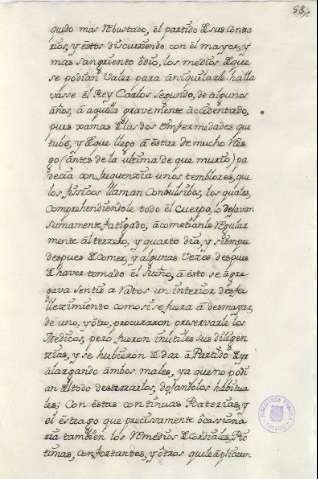 quido mas Robustado, el partido de sus Contra
rios, y éstos discurriendo con el mayor, y
mas sangriento ódio, los medios de que
se podían valer para aniquilarle halla
vasse el Rey Carlos Segundo, de algunos
años, á aquella gravemente accidentado,
pues xamas de las dos Enfermedades que
tubo, y de que llego á estar de mucho Ries
go (ántes de la última de que murió) pa
decia con frequenzia unos temblores, que
los fisicos llaman Convulsibos, los quales
Comprehendiendole todo el Cuerpo, lo dejavan
sumamente fatigado, acometianle Regular
mente al terzero, y quarto dia, y siempre
despues de Comer, y algunas Vezes despues
de haver tomado el Sueño, á ésto se ágre
gava sentir á Ratos un interior desfa
llezimiento como si se fuera á desmayar,
de uno, y ótro, procuraron preservarle los
Medicos, pero fueron inútiles sus diligen
zias, y se hubieron de dar á Partido de yr
alargando ámbos males, ya que no podi
an del todo desterrarlos, dejandolos habitua
les; Con éstas continuas Baterias, y
el éstrago que precisamente ócassiona
rian tambien los Remedios de Cordiales, Pi
timas, confortantes, y ótros que le áplicavan